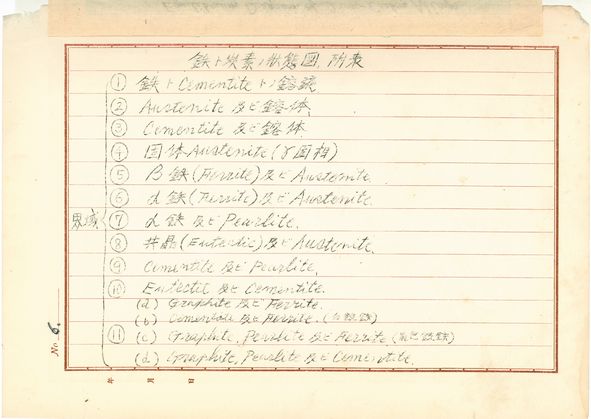 鉄ト炭素ノ状態図 附表
① 鉄トCementiteトノ鎔融
② Austenite 及ビ鎔体
③ Cementite 及ビ鎔体
④ 固体Austenite (γ固相)
⑤ β鉄(Ferrite)及ビ Austenite.
⑥ α鉄(Ferrite)及ビ Austenite.
界域 ⑦ α鉄 及ビ Pearlite.
⑧ 共晶(Eutectic)及ビ Austenite.
⑨ Cementite 及ビ Pearlite.
⑩ Eutectic 及ビ Cementite.
(a) Graphite 及ビ Ferrite.
(b) Cementite 及ビ Ferrite.
⑪ (c) Graphite, Pearlite 及ビ Ferrite
(d) Graphite, Pearlite 及ビ Cementite.
No. 6.
年 月 日